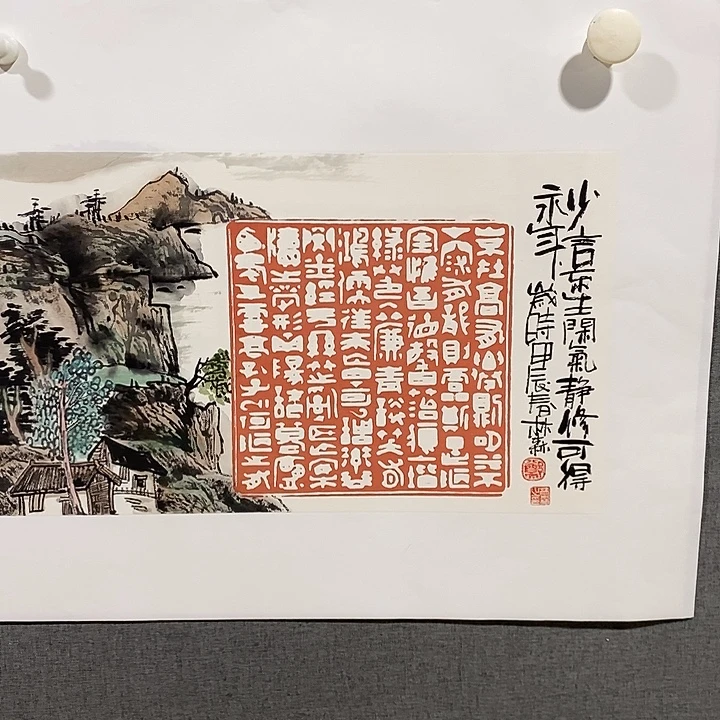 少言不生閑氣静修可得
永年
歲時甲辰春
山不在高有仙則名水
不在深有龍則靈斯是陋
室惟吾德馨苔痕上階
綠草色入簾青談笑有
鴻儒往來無白丁可以調素琴
閱金經無絲竹之亂耳無案
牘之勞形南陽諸葛廬
西蜀子雲亭孔子云何陋之有